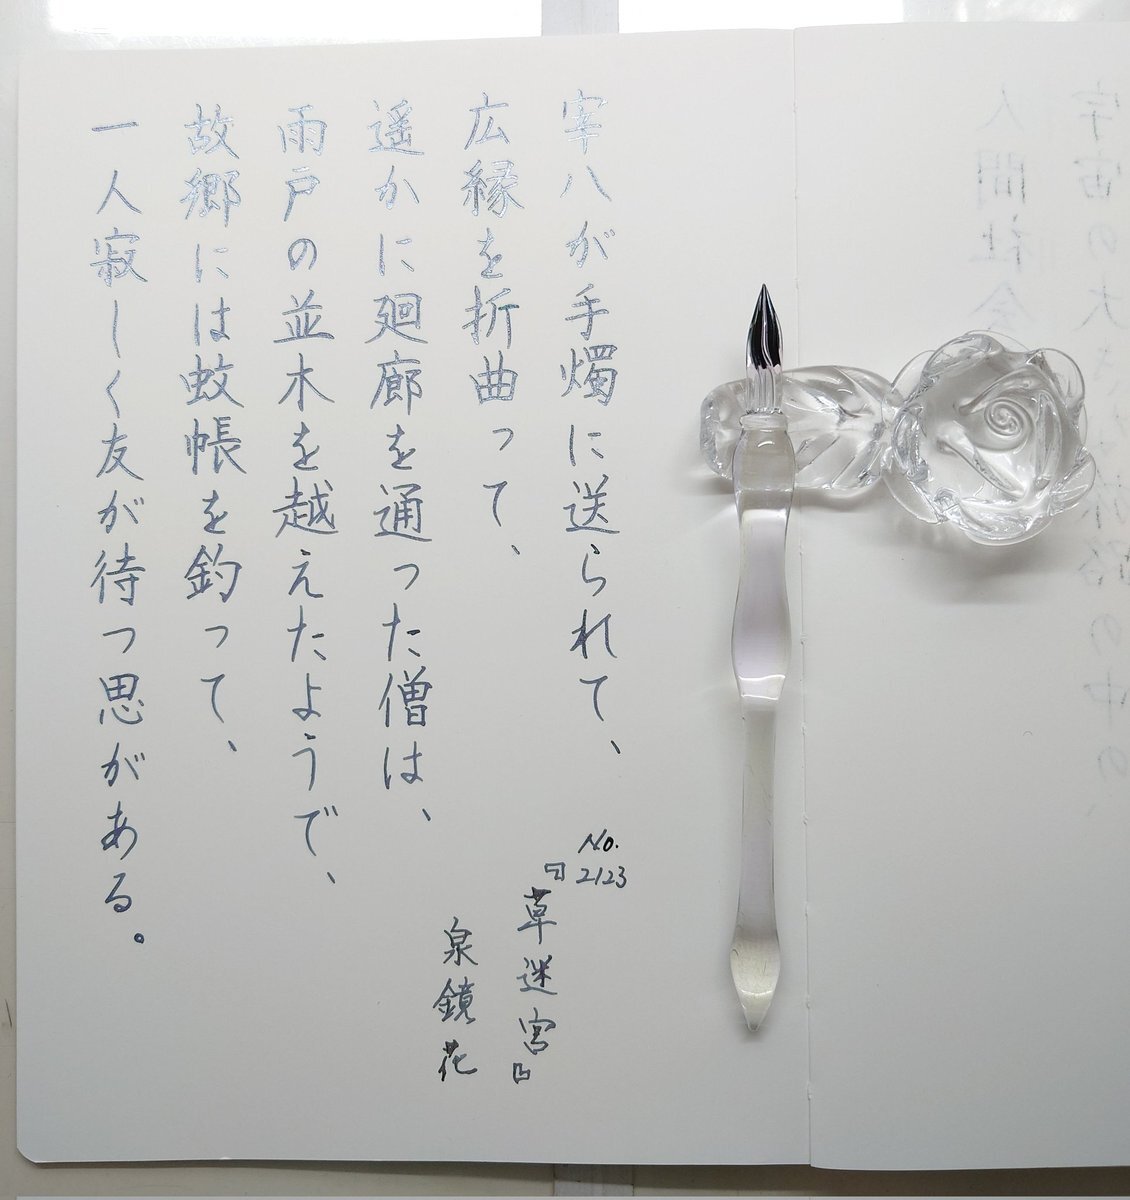 宰八が手燭に送られて、
広縁を折曲って、
遥かに廻廊を通った僧は、
雨戸の並木を越えたようで、
故郷には蚊帳を釣って、
一人寂しく友が待つ思がある。
No.
2123
『草迷宮』
泉鏡花